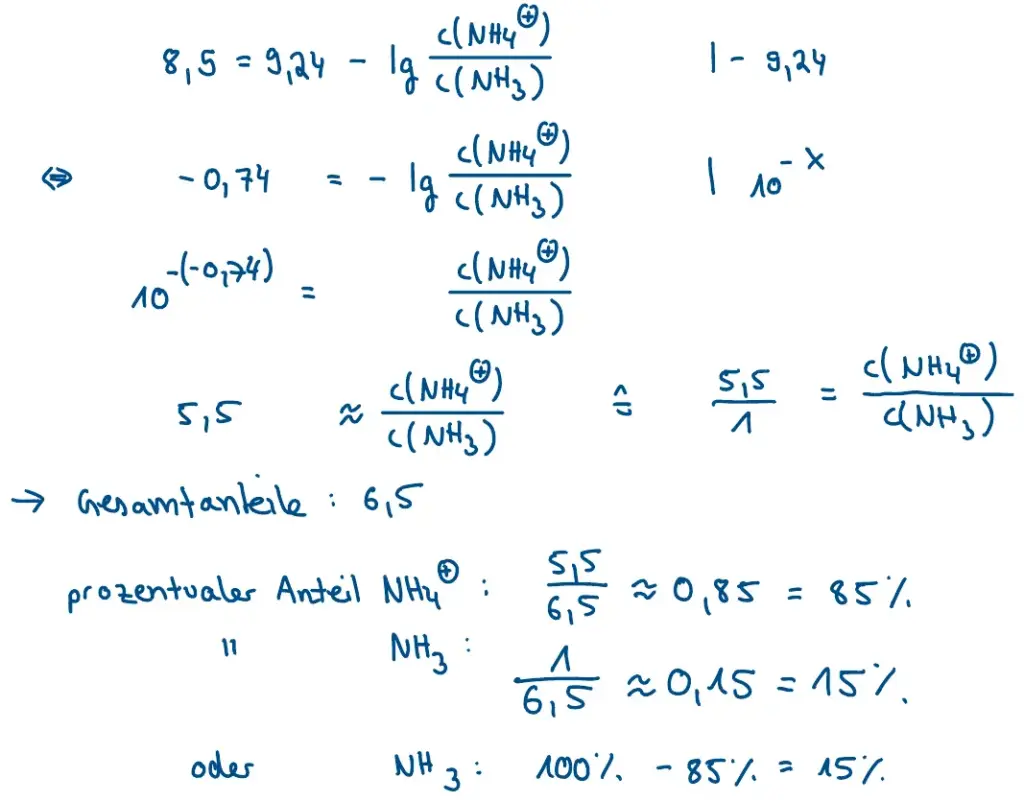 8,5 = 9,24 - lg c(NH4⊕)/c(NH3) | - 9,24
⇔ -0,74 = - lg c(NH4⊕)/c(NH3) | 10^-x
10^-(-0,74) = c(NH4⊕)/c(NH3)
5,5 ≈ c(NH4⊕)/c(NH3) ≙ 5,5/1 = c(NH4⊕)/c(NH3)
→ Gesamtanteile : 6,5
prozentualer Anteil NH4⊕ : 5,5/6,5 ≈ 0,85 = 85%
" NH3 : 1/6,5 ≈ 0,15 = 15%.
oder NH3 : 100% - 85% = 15%